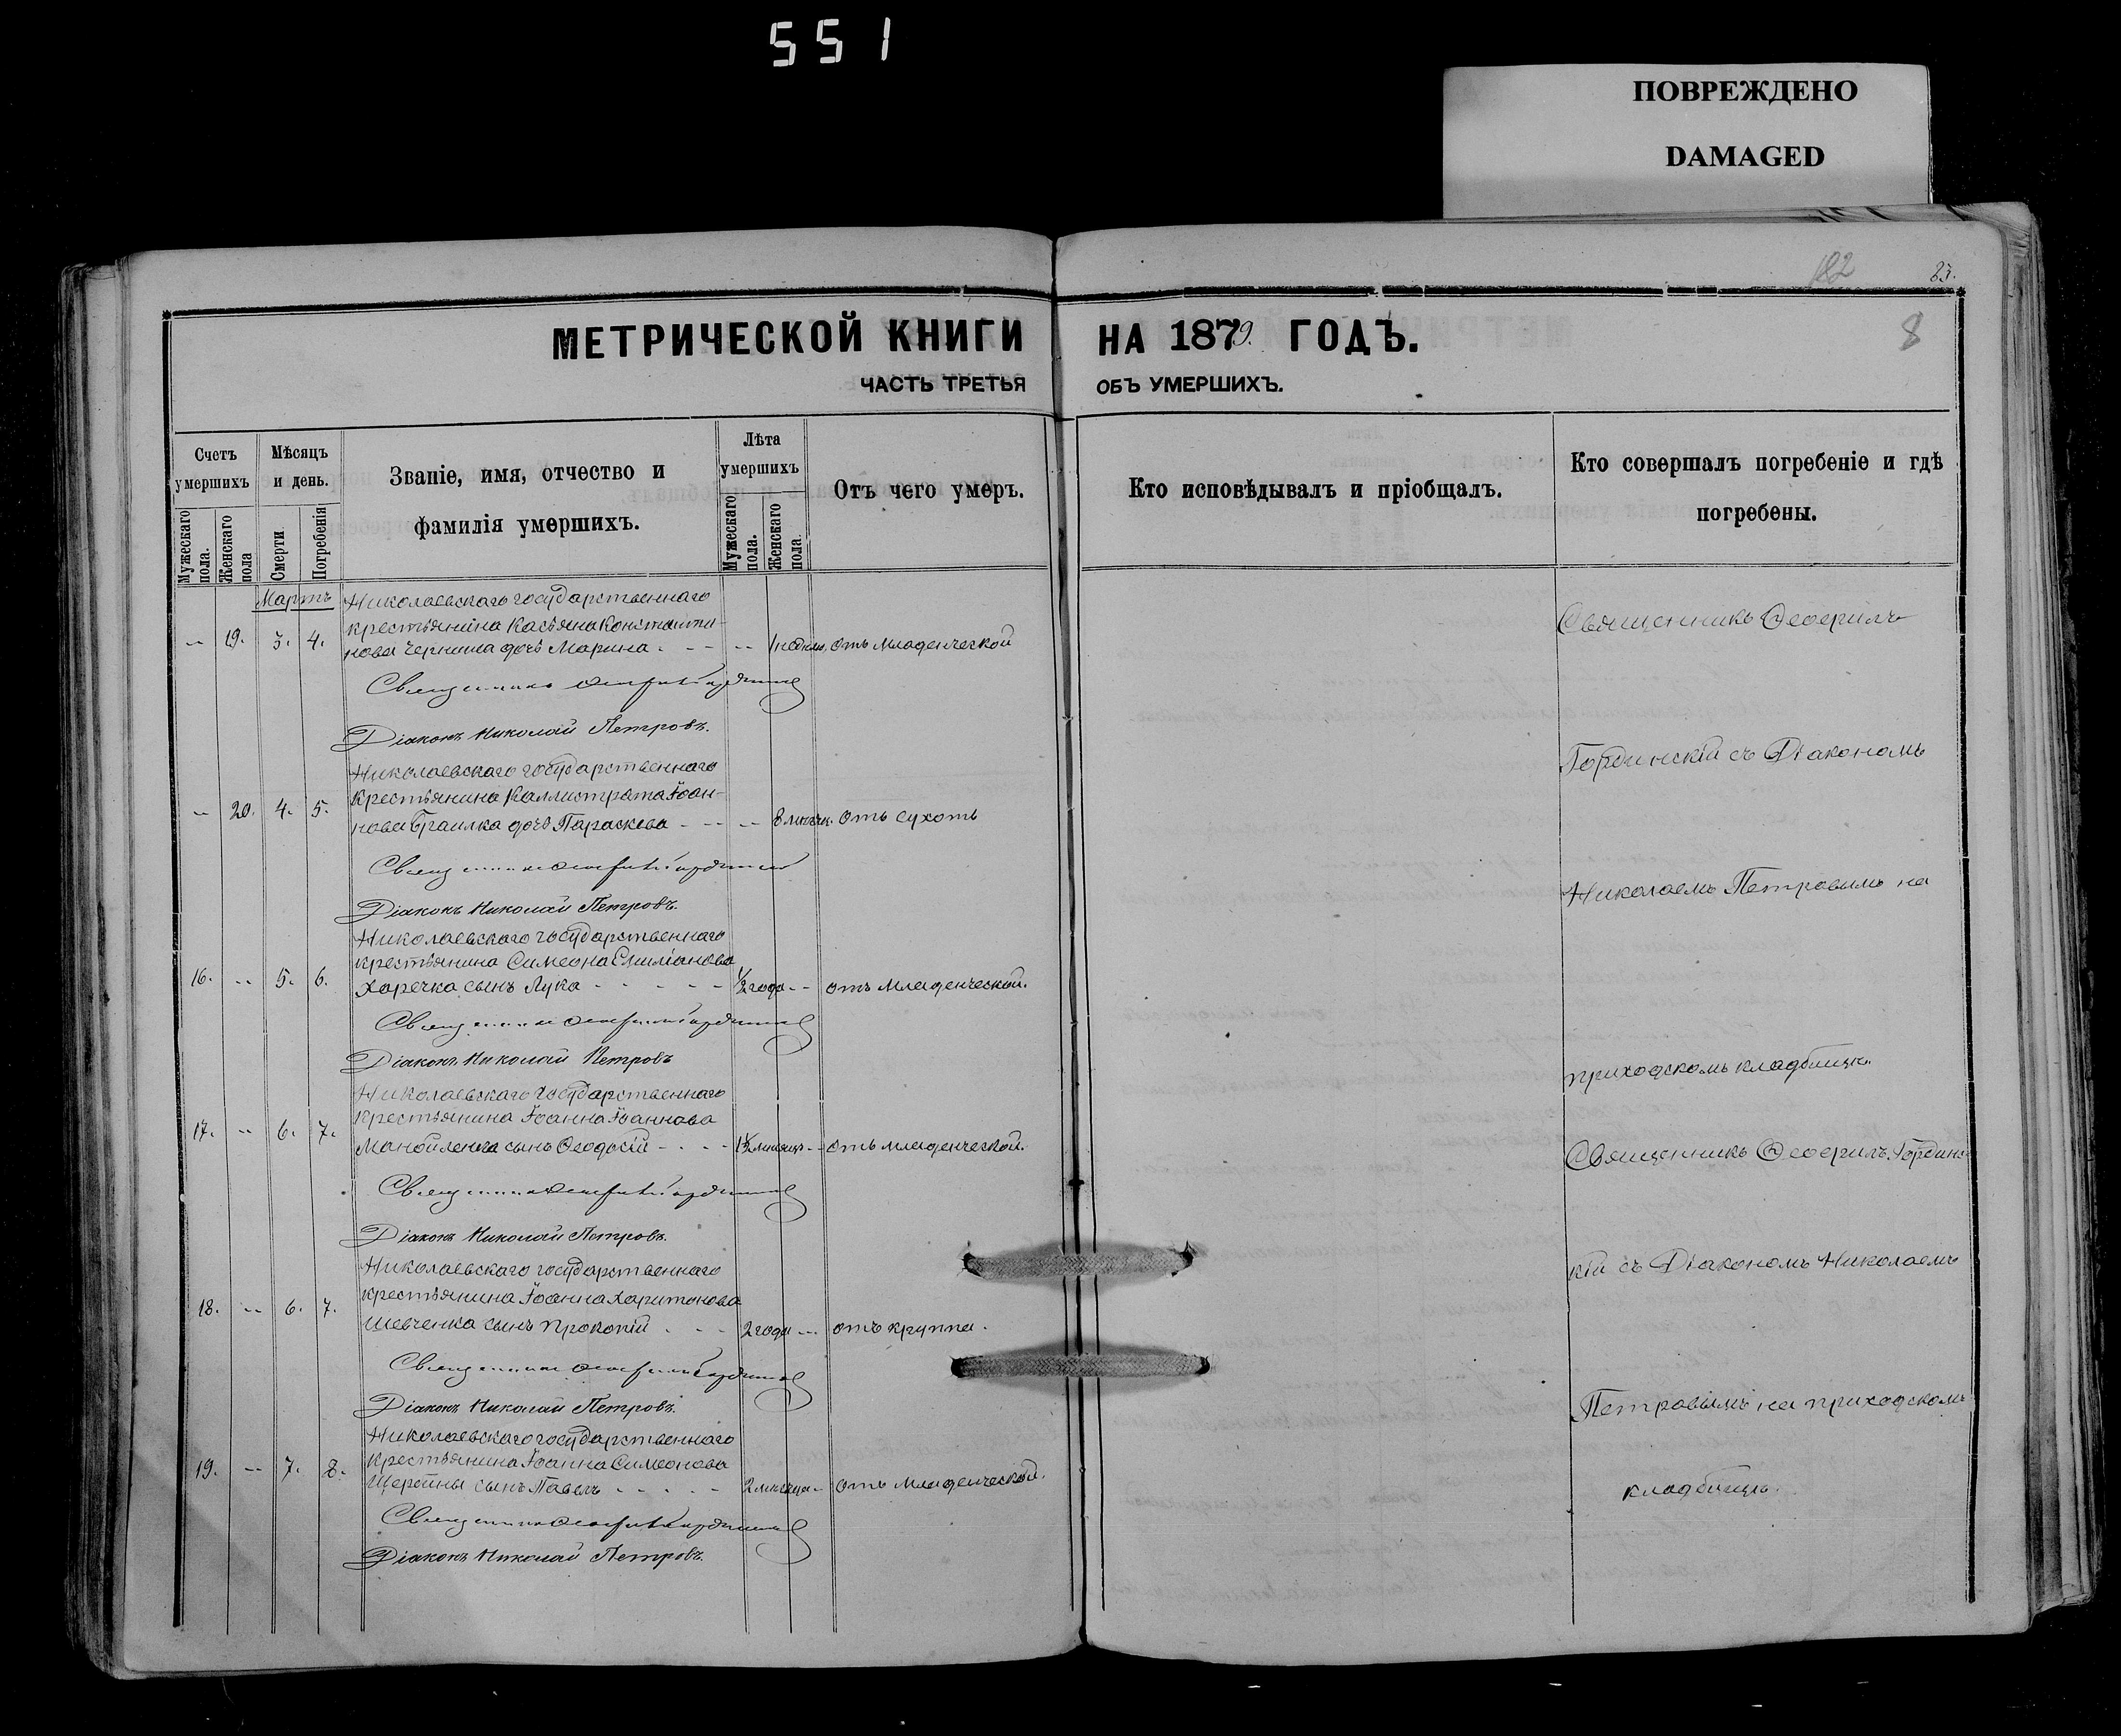 551
ПОВРЕЖДЕНО
DAMAGED
182
8
МЕТРИЧЕСКОЙ КНИГИ НА 1879. ГОДЪ.
ЧАСТЬ ТРЕТЬЯ ОБЪ УМЕРШИХЪ.
Счетъ умершихъ
Мужескаго пола.
Женскаго пола
Мѣсяцъ и день.
Смерти
Погребенія
Званіе, имя, отчество и
фамилія умершихъ.
Лѣта умершихъ
Мужескаго пола.
Женскаго пола.
Отъ чего умеръ.
Кто исповѣдывалъ и пріобщалъ.
Кто совершалъ погребеніе и гдѣ
погребены.
Мартъ
Николаевскаго государственнаго
крестьянина Касьяна Константи-
19. 3. 4. нова дочь Марина 1 недѣли отъ младенческой
Священникъ
Діаконъ Николай Петровъ.
Николаевскаго государственнаго
крестьянина Каллистрата Іоан-
20. 4. 5. нова Браилка дочь Параскева 8 отъ сухотъ
Священникъ
Діаконъ Николай Петровъ.
Николаевскаго государственнаго
крестьянина Симеона Емиліанова
16. 5. 6. Харечка сынъ Лука 1/2 года отъ младенческой.
Священникъ
Діаконъ Николай Петровъ
Николаевскаго государственнаго
крестьянина Іоанна Іоаннова
17. 6. 7. Манойленка сынъ Ѳеодосій отъ младенческой.
Священникъ
Діаконъ Николай Петровъ.
Николаевскаго государственнаго
крестьянина Іоанна Харитонова
18. 6. 7. Шевченка сынъ Прокопій 2 года отъ круппа.
Священникъ
Діаконъ Николай Петровъ.
Николаевскаго государственнаго
крестьянина Іоанна Симеонова
19. 7. 8. сынъ Павелъ 2 мѣсяца отъ младенческой.
Священникъ
Діаконъ Николай Петровъ.
Священникъ Ѳеофилъ
Гординскій съ Діакономъ
Николаемъ Петровымъ на
приходскомъ кладбищѣ.
Священникъ Ѳеофилъ Гординс-
кій съ Діакономъ Николаемъ
Петровымъ на приходскомъ
кладбищѣ.